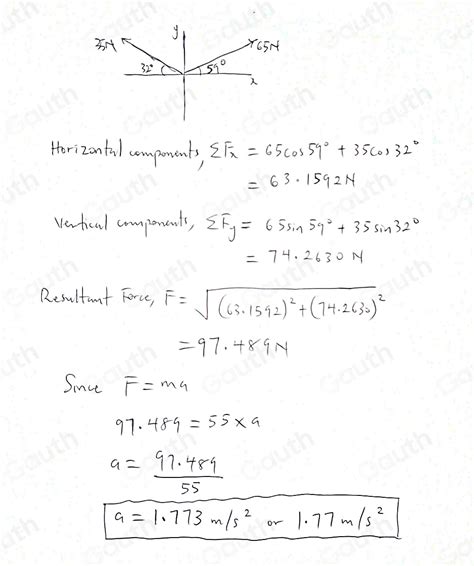 y
35N
65N
32°
59°
x
Horizontal components, ΣFx = 65cos59° + 35cos32°
= 63.1592N
Vertical components, ΣFy = 65sin59° + 35sin32°
= 74.2630 N
Resultant Force, F = √(63.1592)² + (74.2630)²
= 97.489N
Since F = ma
97.489 = 55 × a
a = 97.489
55
a = 1.773 m/s² or 1.77 m/s²
Gauth